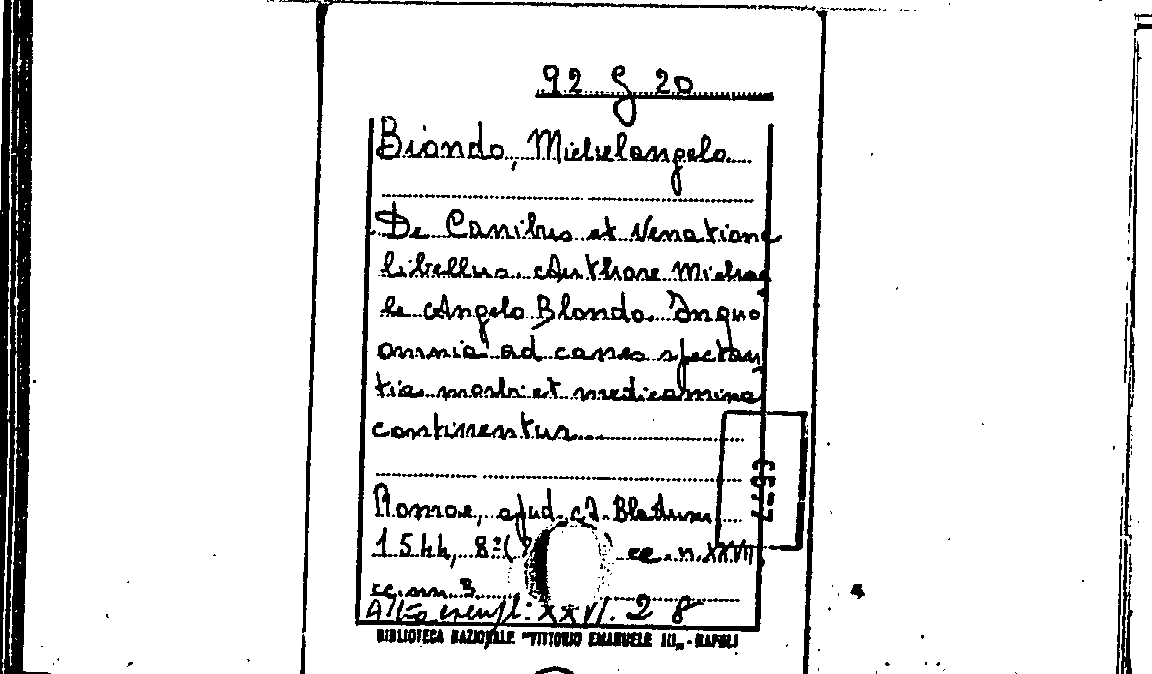 92 G 20
Biondo, Michelangelo
De Canibus et Venatione
libellus. Authore Michae
le Angelo Blondo. In quo
omnia ad canes spectan
tia morbi et medicamina
continentur.
Romae, apud A. Bladum
1544, 8º cc. n. XXVII
cc. nn. 3
Altro exempl: XXVI. 2 8
BIBLIOTECA NAZIONALE "VITTORIO EMANUELE III" - NAPOLI